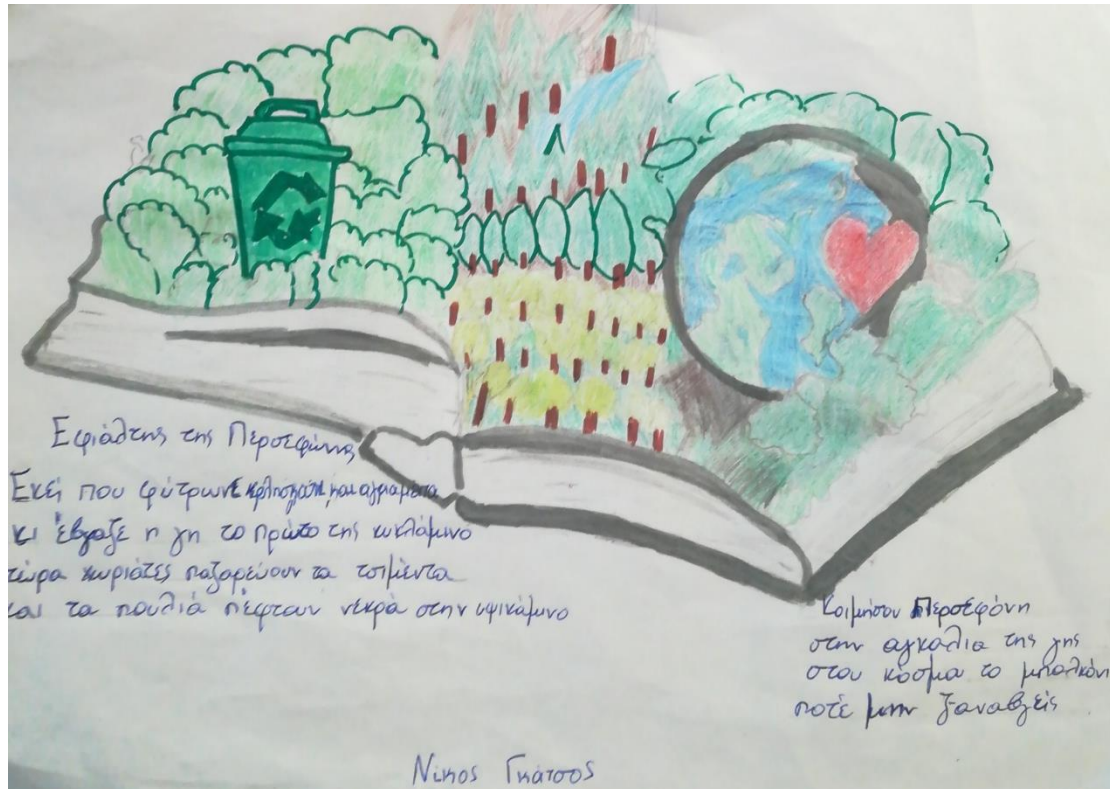 Εφιάλτης της Περσεφόνης
Εκεί που φύτρωνε και αγριαμέντα
κι έβγαζε η γη το πρώτο της κυκλάμινο
τώρα χωριάτες παζαρεύουν τα τσιμέντα
και τα πουλιά πέφταν νεκρά στην υψικάμινο
Κοιμήσου Περσεφόνη
στην αγκαλιά της γης
στου κόσμα το μπαλκόνι
ποτέ μην ξαναβγείς
Νίκος Γκάτσος